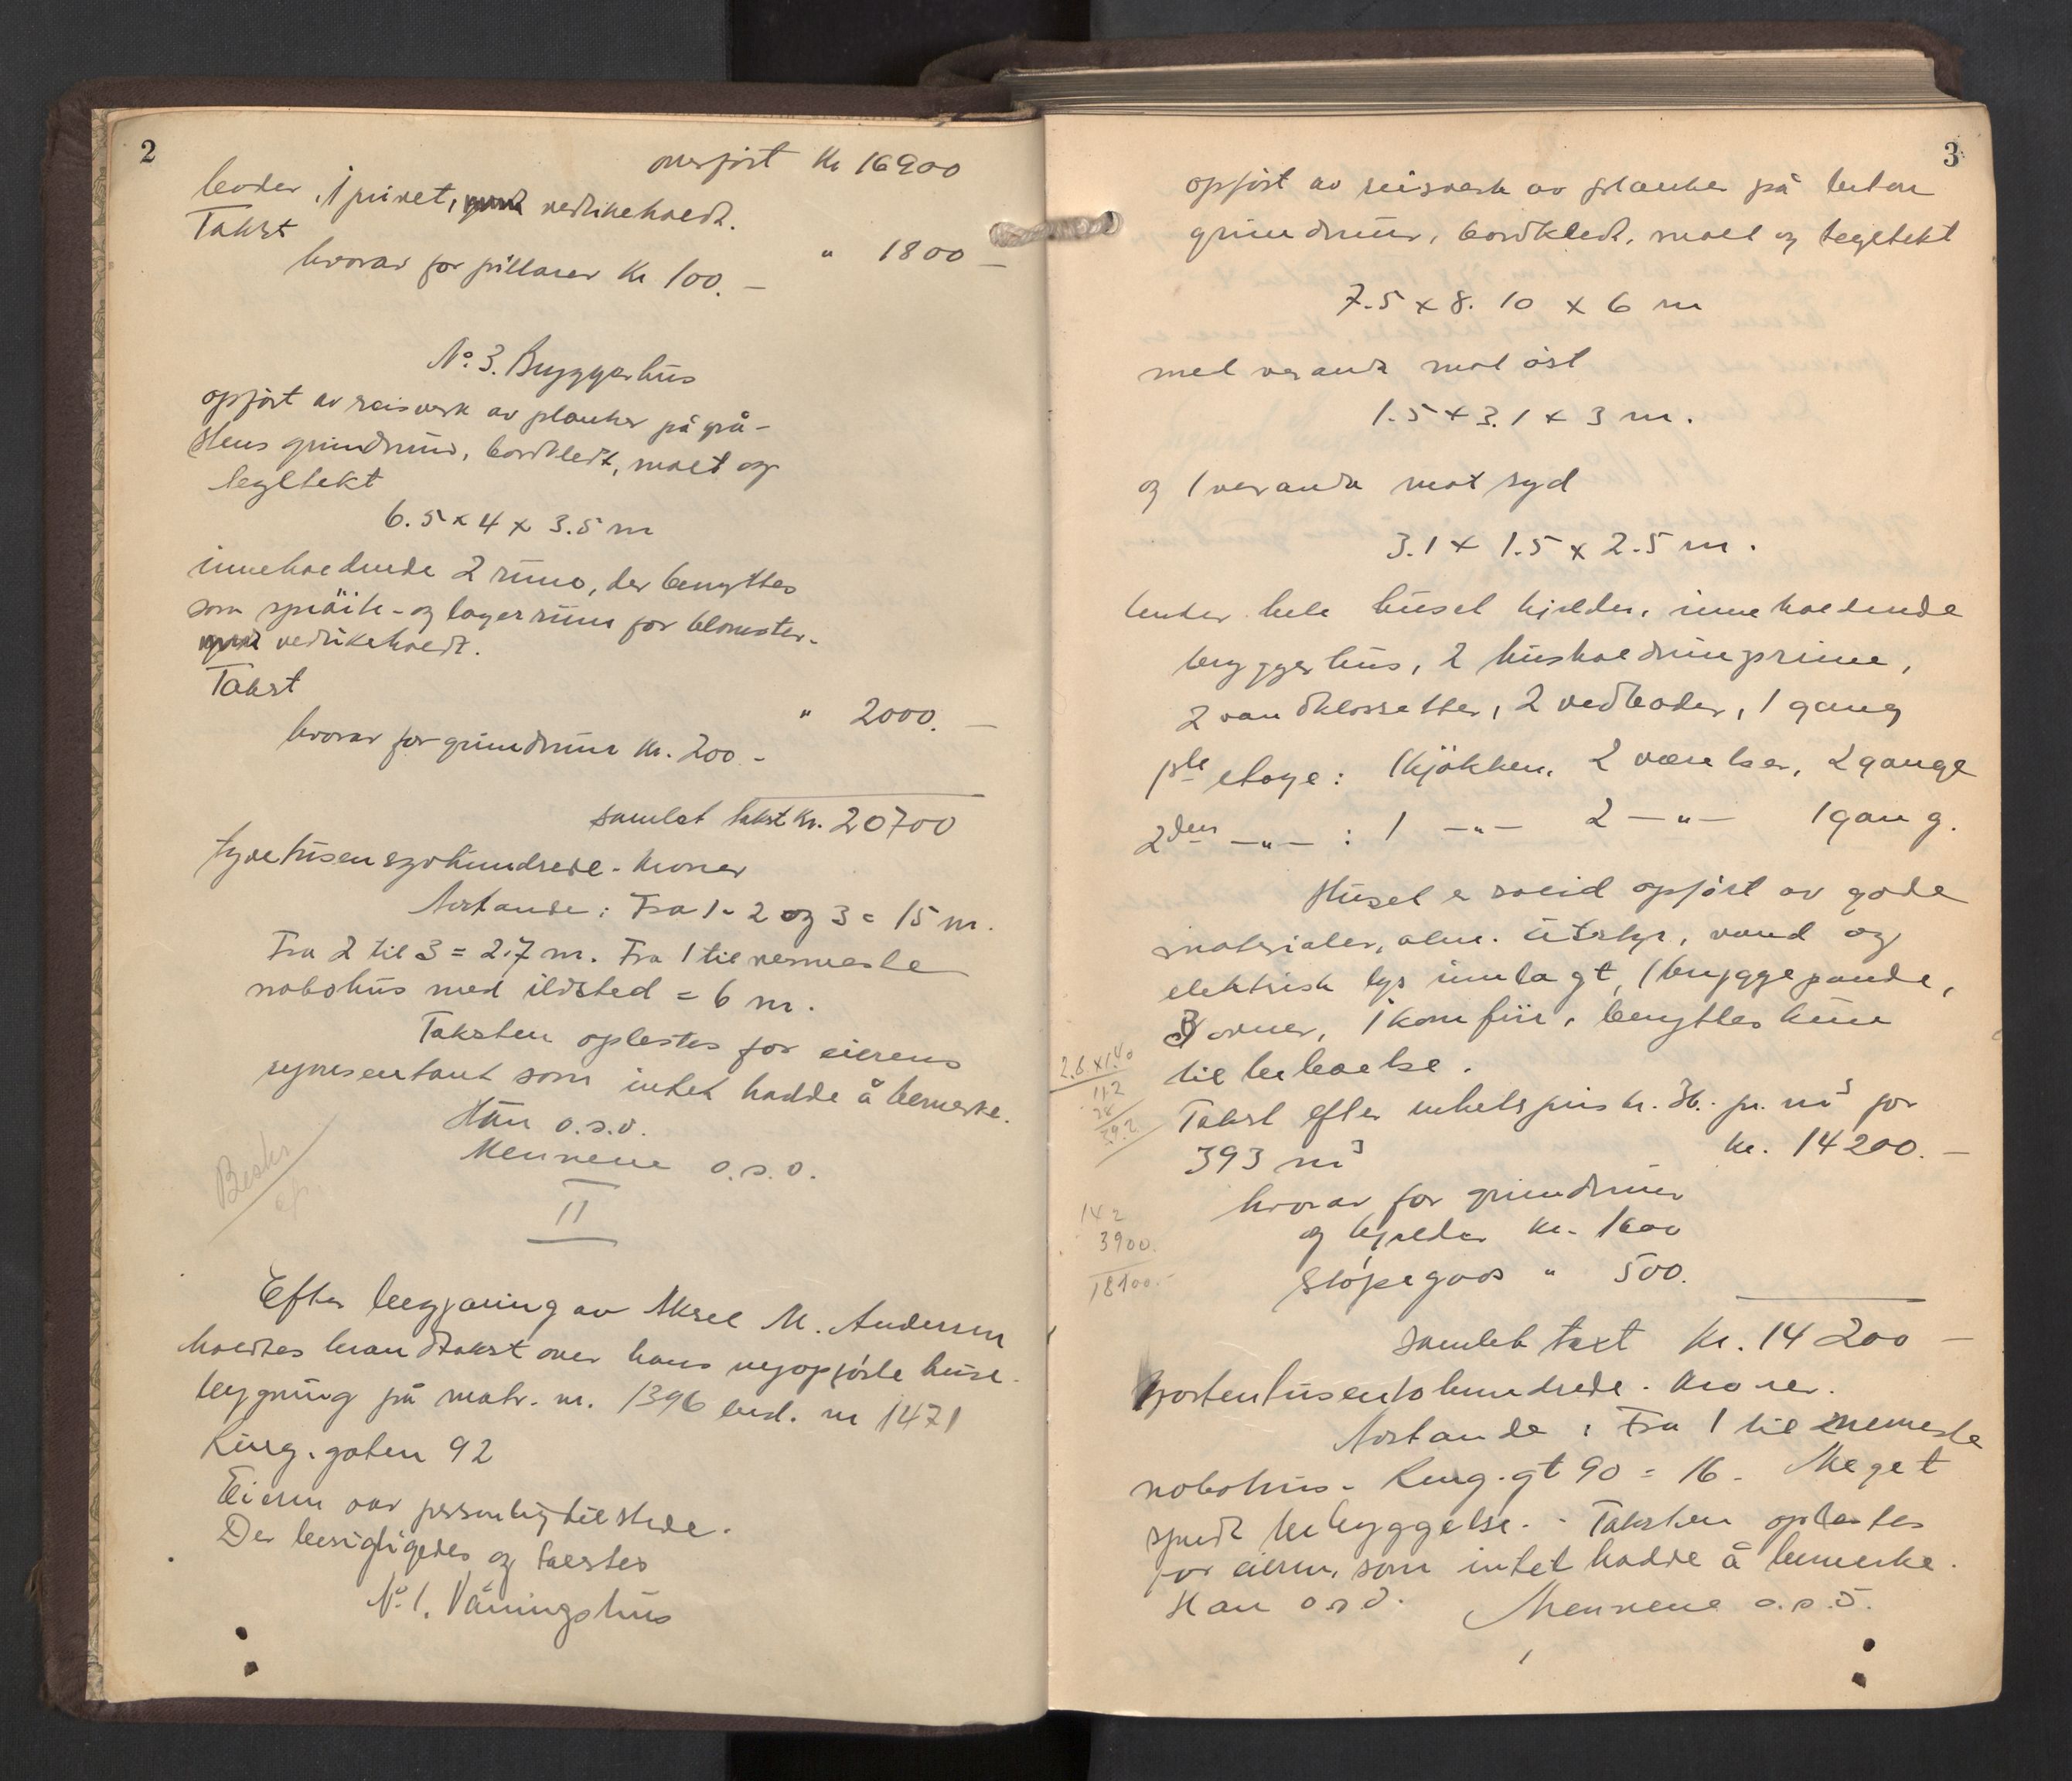 2
overført Kr 16900
boder, 1 privet, vedlikeholdt.
Takst " 1800 –
hvorav for pillarer Kr 100. –
No. 3. Bryggerhus
opført av reisverk av planker på grå-
stens grundmur, bordkledt, malt og
tegltekt
6.5 x 4 x 3.5 m
inneholdende 2 rum, der benyttes
som spräit- og lagerrum for blomster.
vedlikeholdt.
Takst " 2000. –
hvorav for grundmur Kr. 200 –
samlet takst Kr. 20700
tyvetusensyvhundrede – kroner
Avstande: Fra 1 – 2 og 3 = 15 m.
Fra 2 til 3 = 2.7 m. Fra 1 til nærmeste
nabohus med ildsted = 6 m.
Taksten oplæstes for eierens
representant som intet hadde å bemerke.
Han o.s.v.
Mennene o.s.v.
Beskr
II
Efter begjæring av Aksel M. Andersen
holdtes brandtakst over hans nyopførte hus-
bygning på matr. nr. 1396 bnd. nr 1471
Kirkg. gaten 92
Eieren var personlig tilstede.
Der besigtigedes og takstes
No. 1. Våningshus
3
opført av reisverk av planker på beton
grundmur, bordkledt, malt og tegltekt
7.5 x 8.10 x 6 m
med veranda mot öst
1.5 x 3.1 x 3 m.
og 1 veranda mot syd
3.1 x 1.5 x 2.5 m.
Under hele huset kjelder, inneholdende
bryggerhus, 2 husholdningsrum,
2 vandklossetter, 2 vedboder, 1 gang
1ste etage: 1 kjökken, 2 værelser, 2 gange
2den –"– : 1 –"– 2 –"– 1 gang.
Huset e solid opført av gode
materialer, alm. utstyr, vand og
elektrisk lys innlagt, 1 bryggepande,
3 ovner, 1 komfur, benyttes kun
til beboelse.
2.8 x 1.40
112
28
39.2
Takst efter enhetspris kr. 36.- pr. m3 for
393 m3 Kr. 14200. –
142
3900.
18100.-
hvorav for grundmur
og kjelder Kr. 1600
Støpegods " 500.
samlet taxt Kr. 14200 –
fjortentusentohundrede – kroner.
Avstande: Fra 1 til nærmeste
nabohus – Kirkg. gt 90 = 16 – Meget
spredt bebyggelse. – Taksten oplæstes
for eieren, som intet hadde å bemerke.
Han o.s.v. Mennene o.s.v.